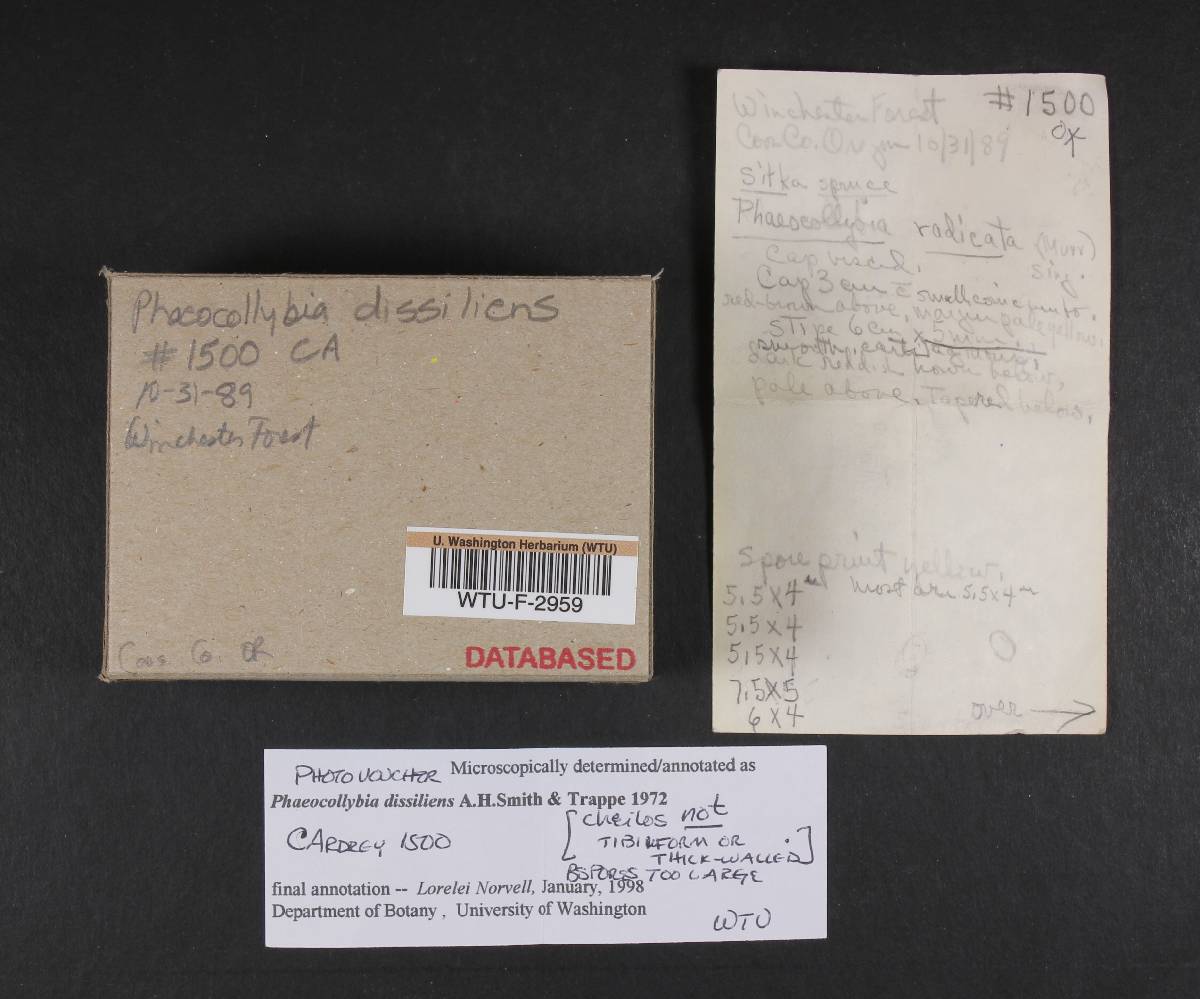 Phaeocollybia dissiliens
#1500 CA
10-31-89
Winchester Forest
U. Washington Herbarium (WTU)
WTU-F-2959
Coos Co. OR
DATABASED
#1500
OK
Winchester Forest
Coos Co. Oregon 10/31/89
Sitka spruce
Phaeocollybia radicata (Murr)
Sing.
Cap viscid,
Cap 3 cm c̄ small conic umbo.
red-brown above, margin pale yellow,
STipe 6 cm x 5 mm.
smooth, cartilaginous,
dark reddish brown below,
pale above, Tapered below,
Spore print yellow,
5.5 x 4 most are 5.5 x 4
5.5 x 4
5.5 x 4
7.5 x 5
6 x 4
over →
PHOTO VOUCHER Microscopically determined/annotated as
Phaeocollybia dissiliens A.H.Smith & Trappe 1972
CARDREY 1500
[cheilos not
TIBIIFORM OR
THICK-WALLED.]
BSPORES TOO LARGE
final annotation -- Lorelei Norvell, January, 1998
Department of Botany , University of Washington
WTU